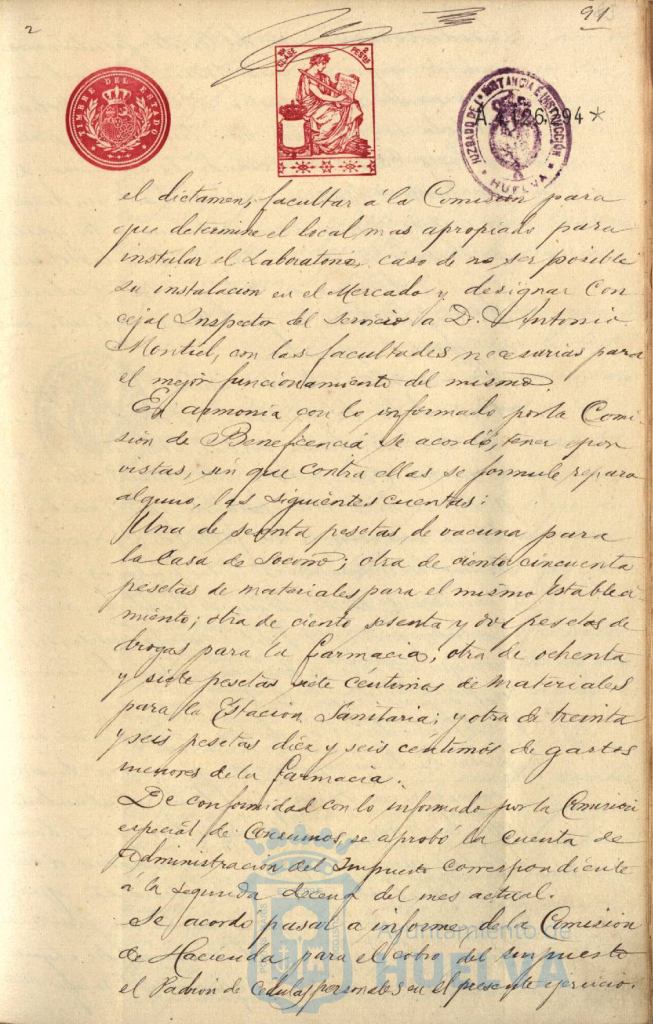 2
91
TIMBRE DEL ESTADO
CLASE
PESETAS
JUZGADO DE 1ª INSTANCIA E INSTRUCCIÓN
HUELVA
el dictamen, facultar á la Comisión para
que determine el local mas apropiado para
instalar el Laboratorio, caso de no ser posible
su instalacion en el Mercado y designar Con-
cejal Inspector del Servicio a D. Antonio
Montiel, con las facultades necesarias para
el mejor funcionamiento del mismo.
En armonía con lo informado por la Comi-
sión de Beneficencia se acordó, tener por
vistas, sin que contra ellas se formule reparo
alguno, las siguientes cuentas:
Una de pesetas de vacuna para
la Casa de Socorro; otra de ciento cincuenta
pesetas de materiales para el mismo Estableci
miento; otra de ciento sesenta y dos pesetas de
drogas para la farmacia; otra de ochenta
y siete pesetas siete centimos de materiales
para la Estacion Sanitaria; y otra de treinta
y seis pesetas diez y seis centimos de gastos
menores de la farmacia.
De conformidad con lo informado por la Comisión
especial de Consumos, se aprobó la cuenta de
Administración del Impuesto correspondiente
á la segunda decena del mes actual.
Se acordo pasar a informe de la Comision
de Hacienda para el cobro del impuesto
el Padron de Cedulas personales en el presente ejercicio.
Ayuntamiento de
HUELVA